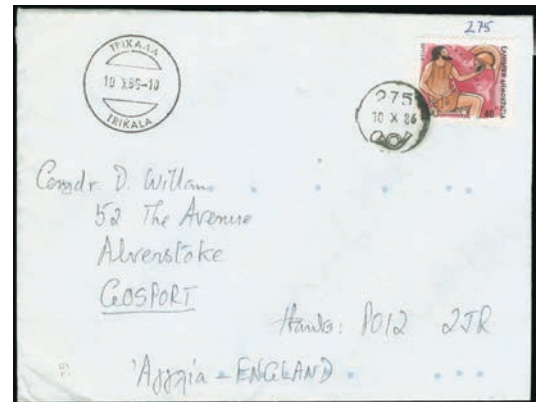 275
ΤΡΙΚΑΛΑ
10 X 86-10
TRIKALA
275
10 X 86
ΕΛΛΗΝΙΚΗ ΔΗΜΟΚΡΑΤΙΑ
40
Comdr. D. Willan
52 The Avenue
Alverstoke
GOSPORT
Hants: PO12 2JR
'Αγγλία - ENGLAND